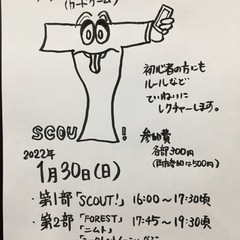 (カードゲーム)
初心者の方にも
ルールなど
ていねいに
レクチャーします。
SCOUT!
参加費
各部300円
(両部参加は500円)
2022年
1月30日(日)
・第1部「SCOUT!」 16:00〜17:30頃
・第2部「FOREST」 17:45〜19:30頃
「ニムト」